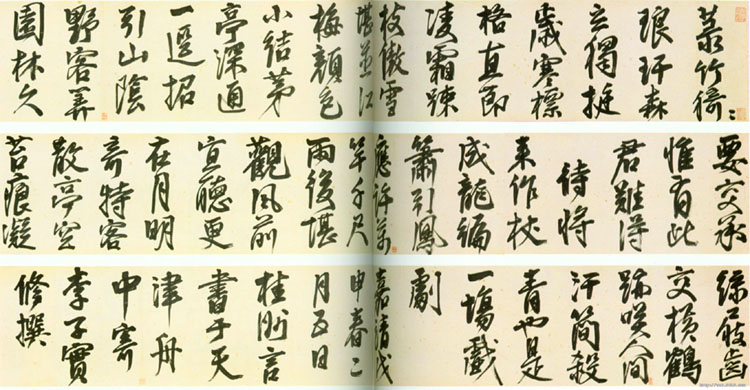 菉竹猗猗
琅玕森
立獨挺
歲寒標
格直節
凌霜踈
枝傲雪
堪並江
梅顏色
小結茅
亭深通
一逕招
引山陰
野客筭
園林久
要交承
惟有此
君難得
待將
來作杖
成龍編
簫引鳳
應許萬
竿千尺
雨後堪
觀風前
宜聽更
在月明
奇特客
散亭空
苔痕凝
綠屐齒
交橫鶴
跡咲人間
汗簡殺
青也是
一塲戲
劇
嘉靖戊
申春二
月五日
桂洲言
書于天
津舟
中寄
李子實
修撰